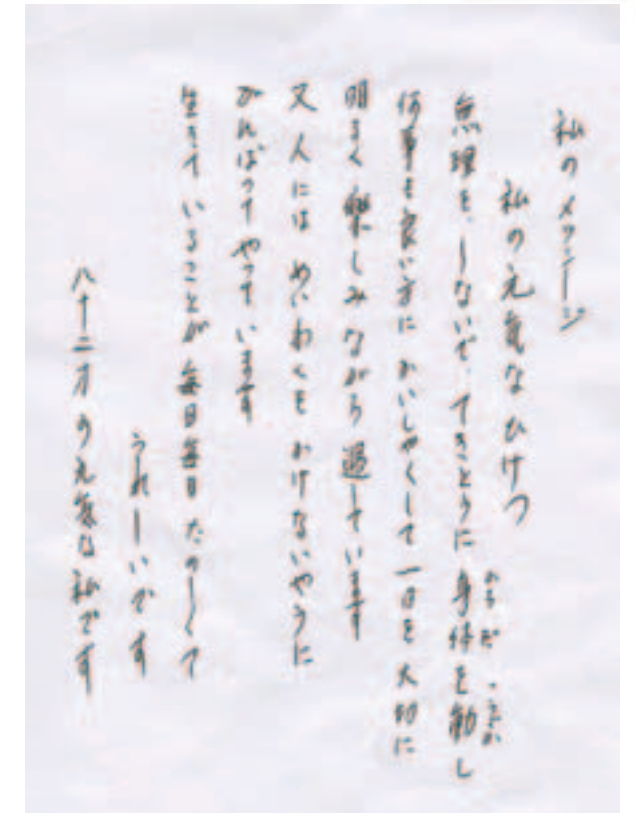 私のメッセージ
私の元気なひけつ
無理をしないで、てきとうに身体を動し
何事も良い方にかいしゃくして一日を大切に
明るく楽しみながら過しています
又人にはめいわくをかけないやうに
がんばってやっています
生きていることが毎日毎日たのしくて
うれしいです
八十二才の元気な私です